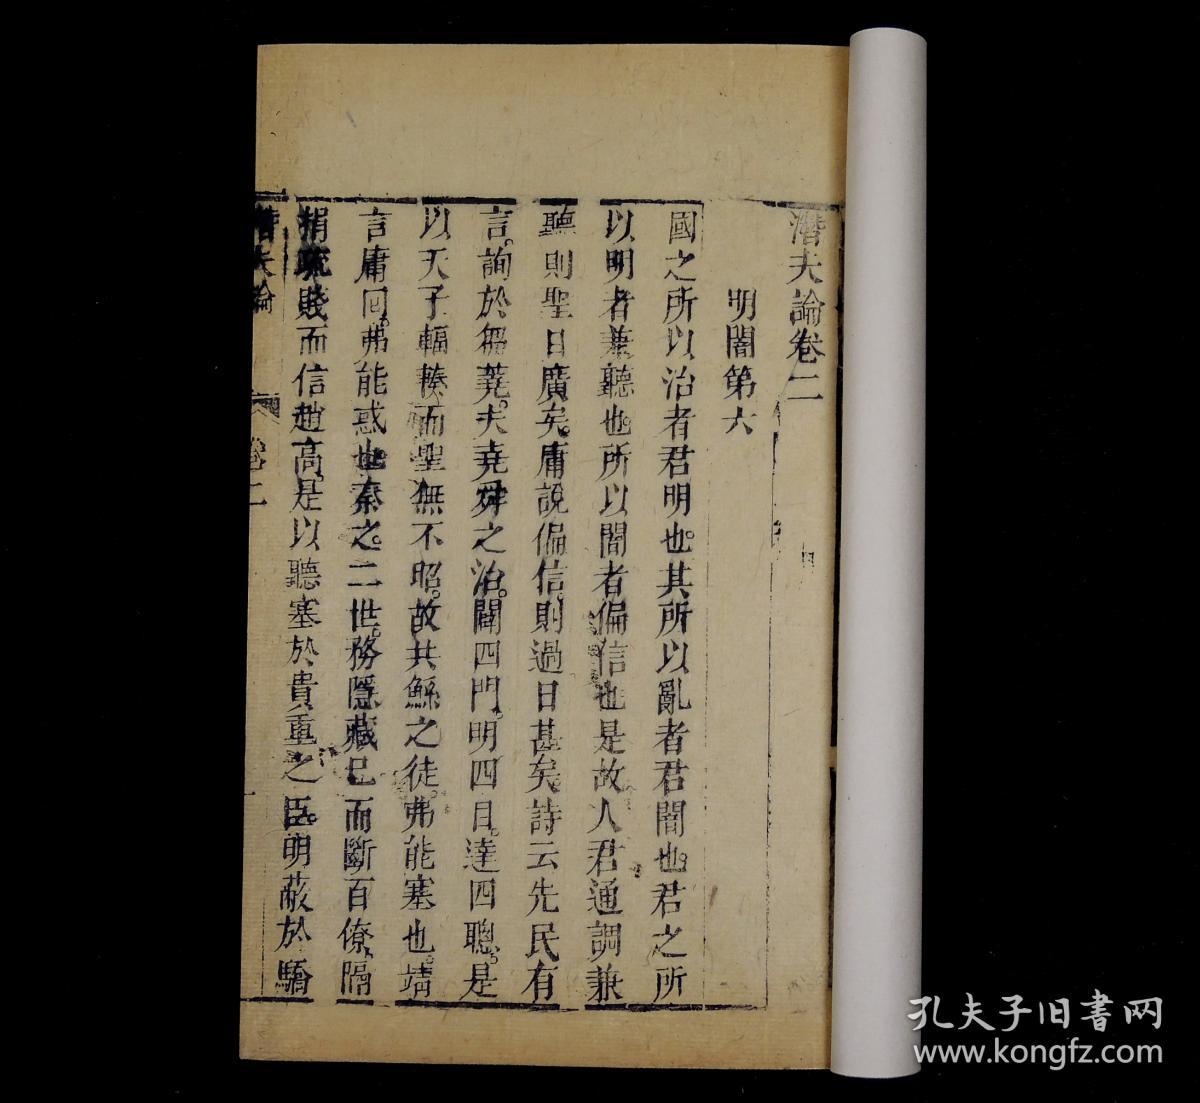 潛夫論卷二
明闇第六
國之所以治者君明也其所以亂者君闇也君之所
以明者兼聽也所以闇者偏信也是故人君通調兼
聽則聖日廣矣庸說偏信則過日甚矣詩云先民有
言詢於芻蕘夫堯舜之治闢四門明四目達四聰是
以天子輻輳而聖無不昭故共鯀之徒弗能塞也靖
言庸回弗能惑也秦之二世務隱藏已而斷百僚隔
捐疏賤而信趙高是以聽塞於貴重之臣明蔽於驕
潛夫論 卷二 一
孔夫子旧书网
www.kongfz.com